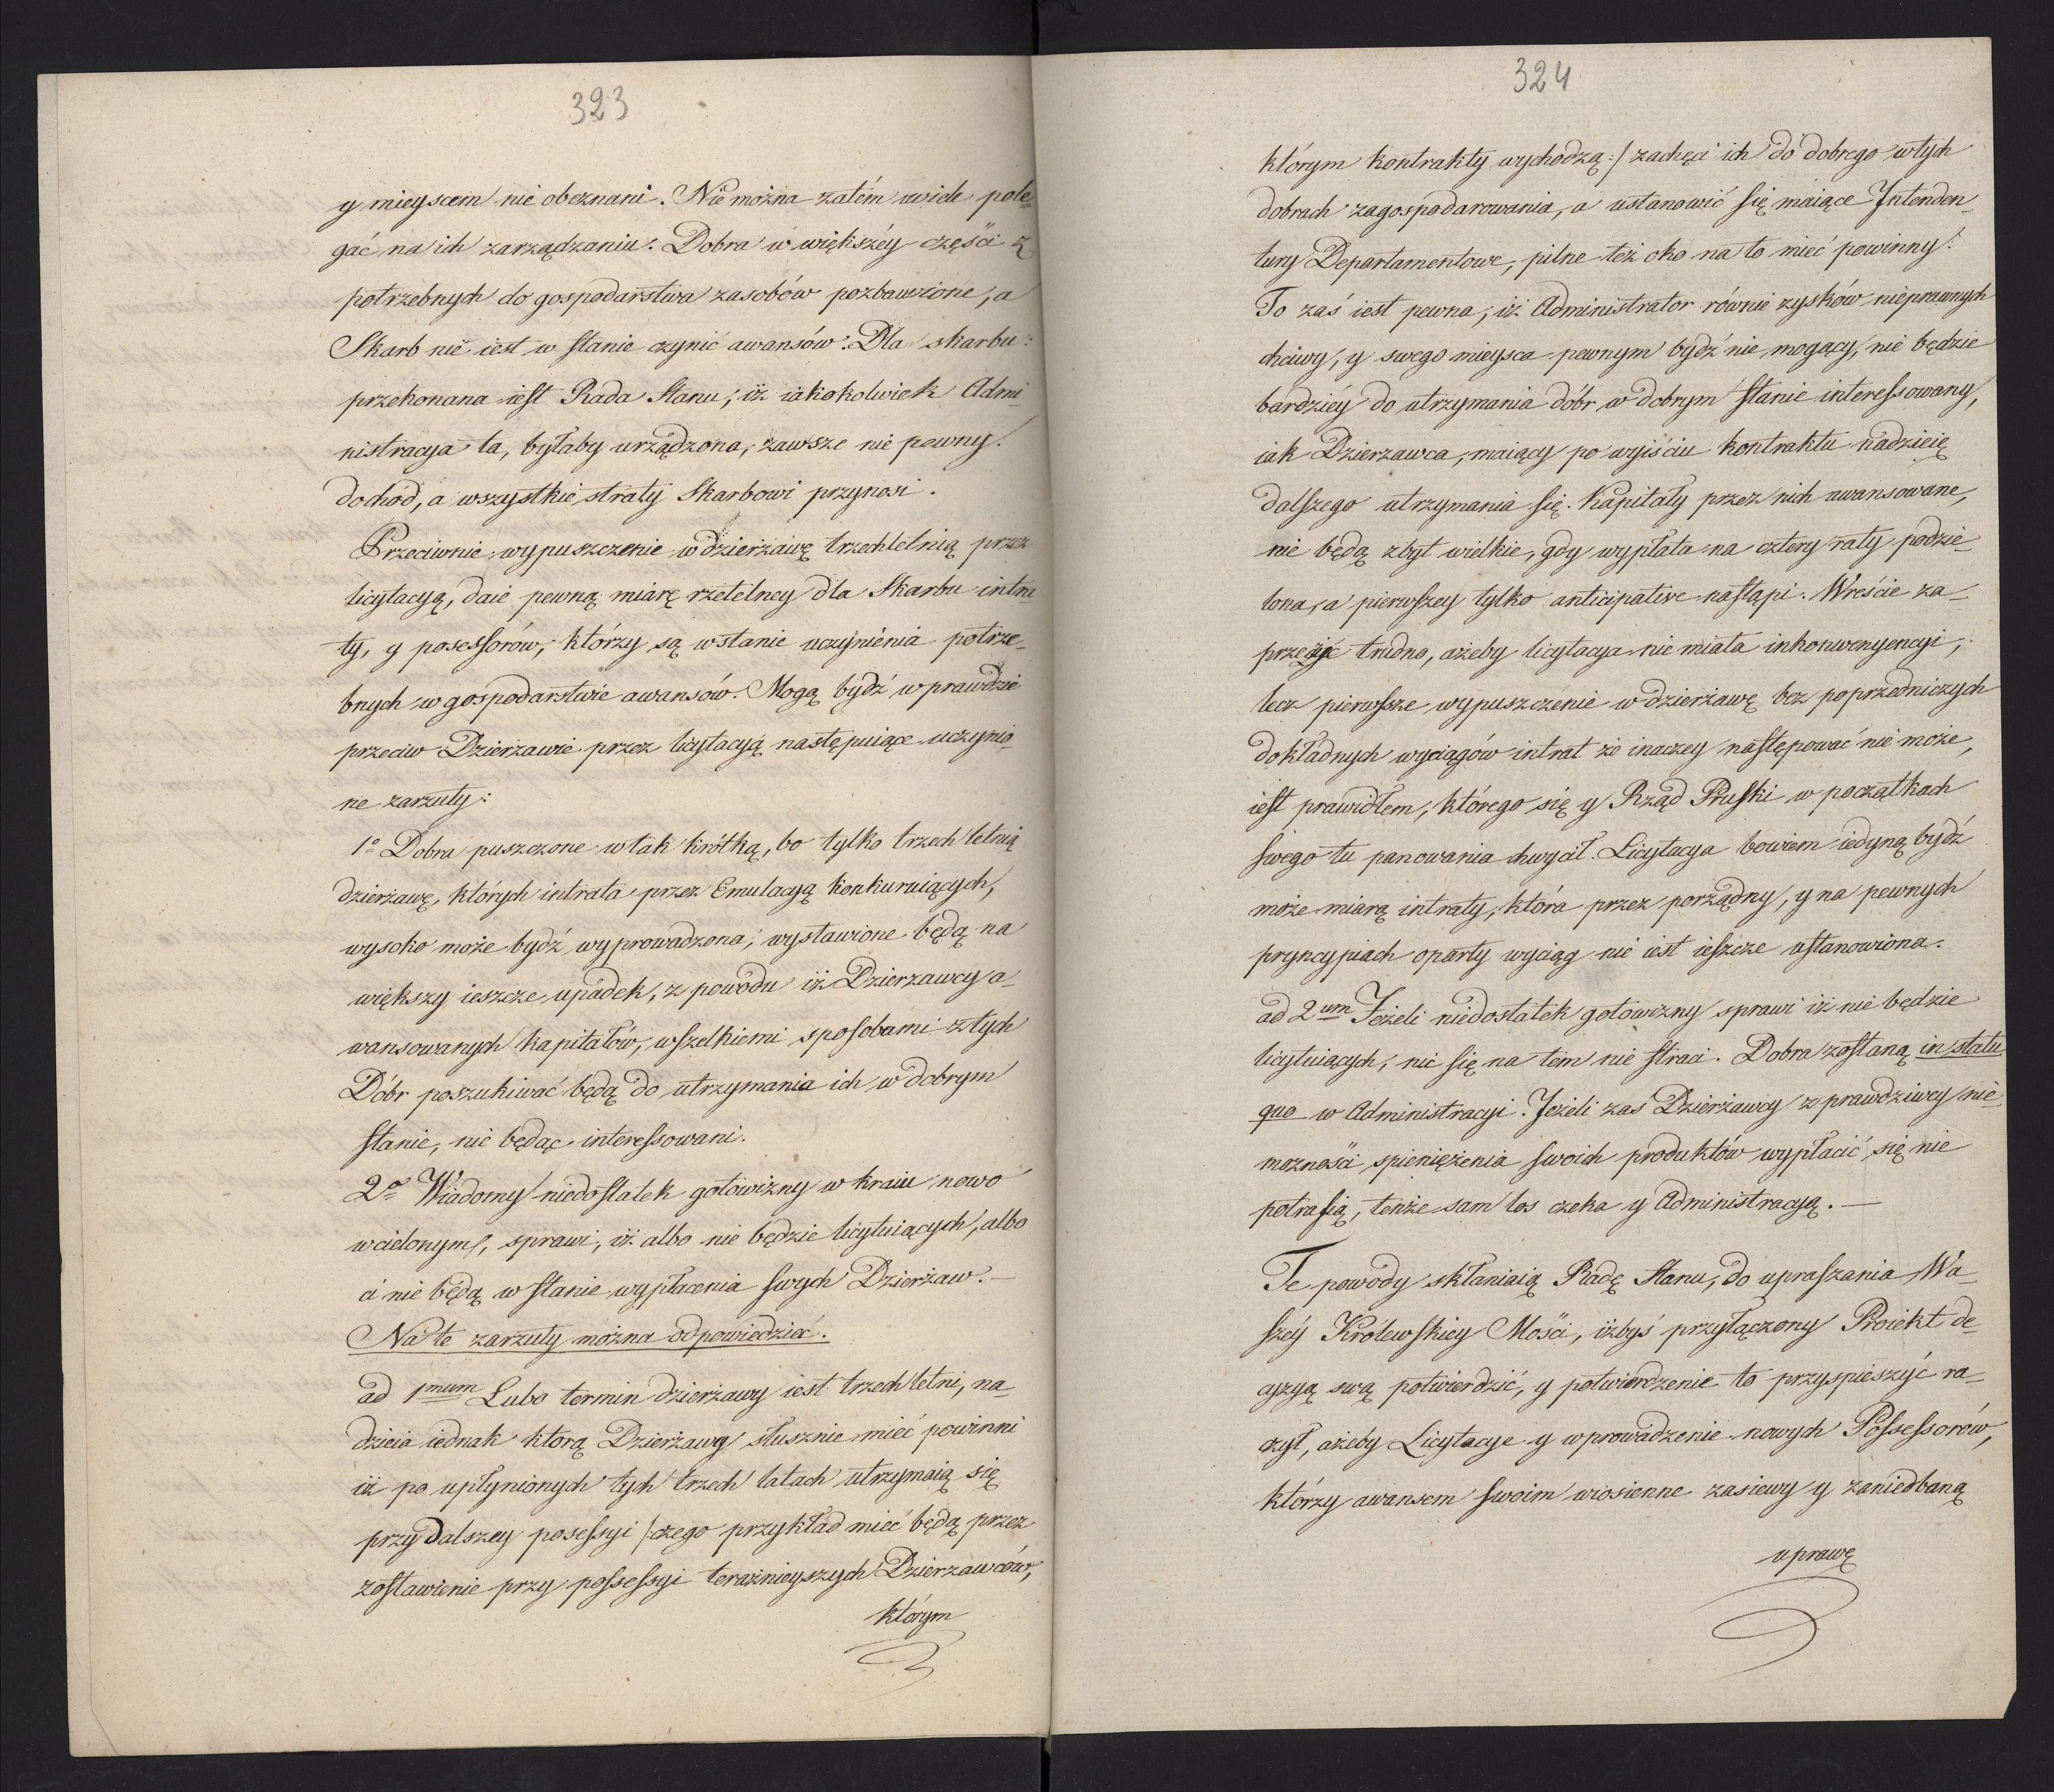 323
y mieyscem nie obeznani. Nie można zatém wiele pole-
gać na ich zarządzaniu. Dobra w większéy części z
potrzebnych do gospodarstwa zasobów pozbawione, a
Skarb nie iest w stanie czynić awansów. Dla skarbu:
przekonana iest Rada Stanu, iż iakokolwiek Admi-
nistracya ta, byłaby urządzona, zawsze nie pewny
dochod, a wszystkie straty Skarbowi przynosi.
Przeciwnie wypuszczenie w dzierżawę trzechletnią przez
licytacyą, daie pewną miarę rzetelney dla Skarbu intra-
ty, y posessorów, którzy są w stanie uczynienia potrze-
bnych w gospodarstwie awansów. Mogą bydź wprawdzie
przeciw Dzierżawie przez licytacyą następuiące uczynio-
ne zarzuty:
1o Dobra puszczone w tak krótką, bo tylko trzech letnią
dzierżawę, których intrata przez Emulacyą konkuruiących,
wysoko może bydź wyprowadzona, wystawione będą na
większy ieszcze upadek, z powodu iż Dzierzawcy a-
wansowanych kapitałów, wszelkiemi sposobami z tych
Dóbr poszukiwać będą do utrzymania ich w dobrym
stanie, nie będąc interessowani.
2o Wiadomy niedostatek gotowizny w kraiu nowo
wcielonym, sprawi, iż albo nie będzie licytuiących, albo
ci nie będą w stanie wypłacenia swych Dzierżaw.—
Na te zarzuty można odpowiedzieć.
ad 1mum Lubo termin dzierżawy iest trzech letni, na-
dzieia iednak którą Dzierżawcy słusznie mieć powinni
iż po upłynionych tych trzech latach utrzymaią się
przy dalszey posessyi /:czego przykład mieć będą przez
zostawienie przy possessyi teraźnieyszych Dzierzawców,
którym
324
którym kontrakty wychodzą:/ zachęci ich do dobrego w tych
dobrach zagospodarowania, a ustanowić się maiące Intenden-
tury Departamentowe, pilne też oko na to mieć powinny.
To zaś iest pewna, iż Administrator równie zysków nieprawnych
chciwy, y swego mieysca pewnym bydź nie mogący, nie będzie
bardziéy do utrzymania dóbr w dobrym stanie interessowany,
iak Dzierzawca, maiący po wyiściu kontraktu nadzieię
dalszego utrzymania się. Kapitały przez nich awansowane,
nie będą zbyt wielkie, gdy wypłata na cztery raty podzie-
lona, a pierwszey tylko anticipative nastąpi. Wreście za-
przeczyć trudno, ażeby licytacya nie miała inkonwenyencyi,
lecz pierwsze wypuszczenie w dzierżawę bez poprzedniczych
dokładnych wyciągów intrat że inaczey następować nie może,
iest prawidłem, którego się y Rząd Pruski w początkach
swego tu panowania chwycił. Licytacya bowiem iedyną bydź
może miarą intraty, która przez porządny, y na pewnych
pryncypiach oparty wyciąg nie iest ieszcze ustanowiona.
ad 2um Jeżeli niedostatek gotowizny sprawi iż nie będzie
licytuiących, nic się na tem nie straci. Dobra zostaną in statu
quo w Administracyi. Jeżeli zaś Dzierżawcy z prawdziwey nie-
mozności spieniężenia swoich produktów wypłacić się nie
potrafią, tenże sam los czeka y Administracyą.—
Te powody skłaniaią Radę Stanu, do upraszania Wa-
széy Królewskiey Mości, iżbyś przyłączony Proiekt de-
cyzyą swą potwierdzić, y potwierdzenie to przyspieszyć ra-
czył, ażeby Licytacye y wprowadzenie nowych Possessorów,
którzy awansem swoim wiosienne zasiewy y zaniedbaną
uprawę